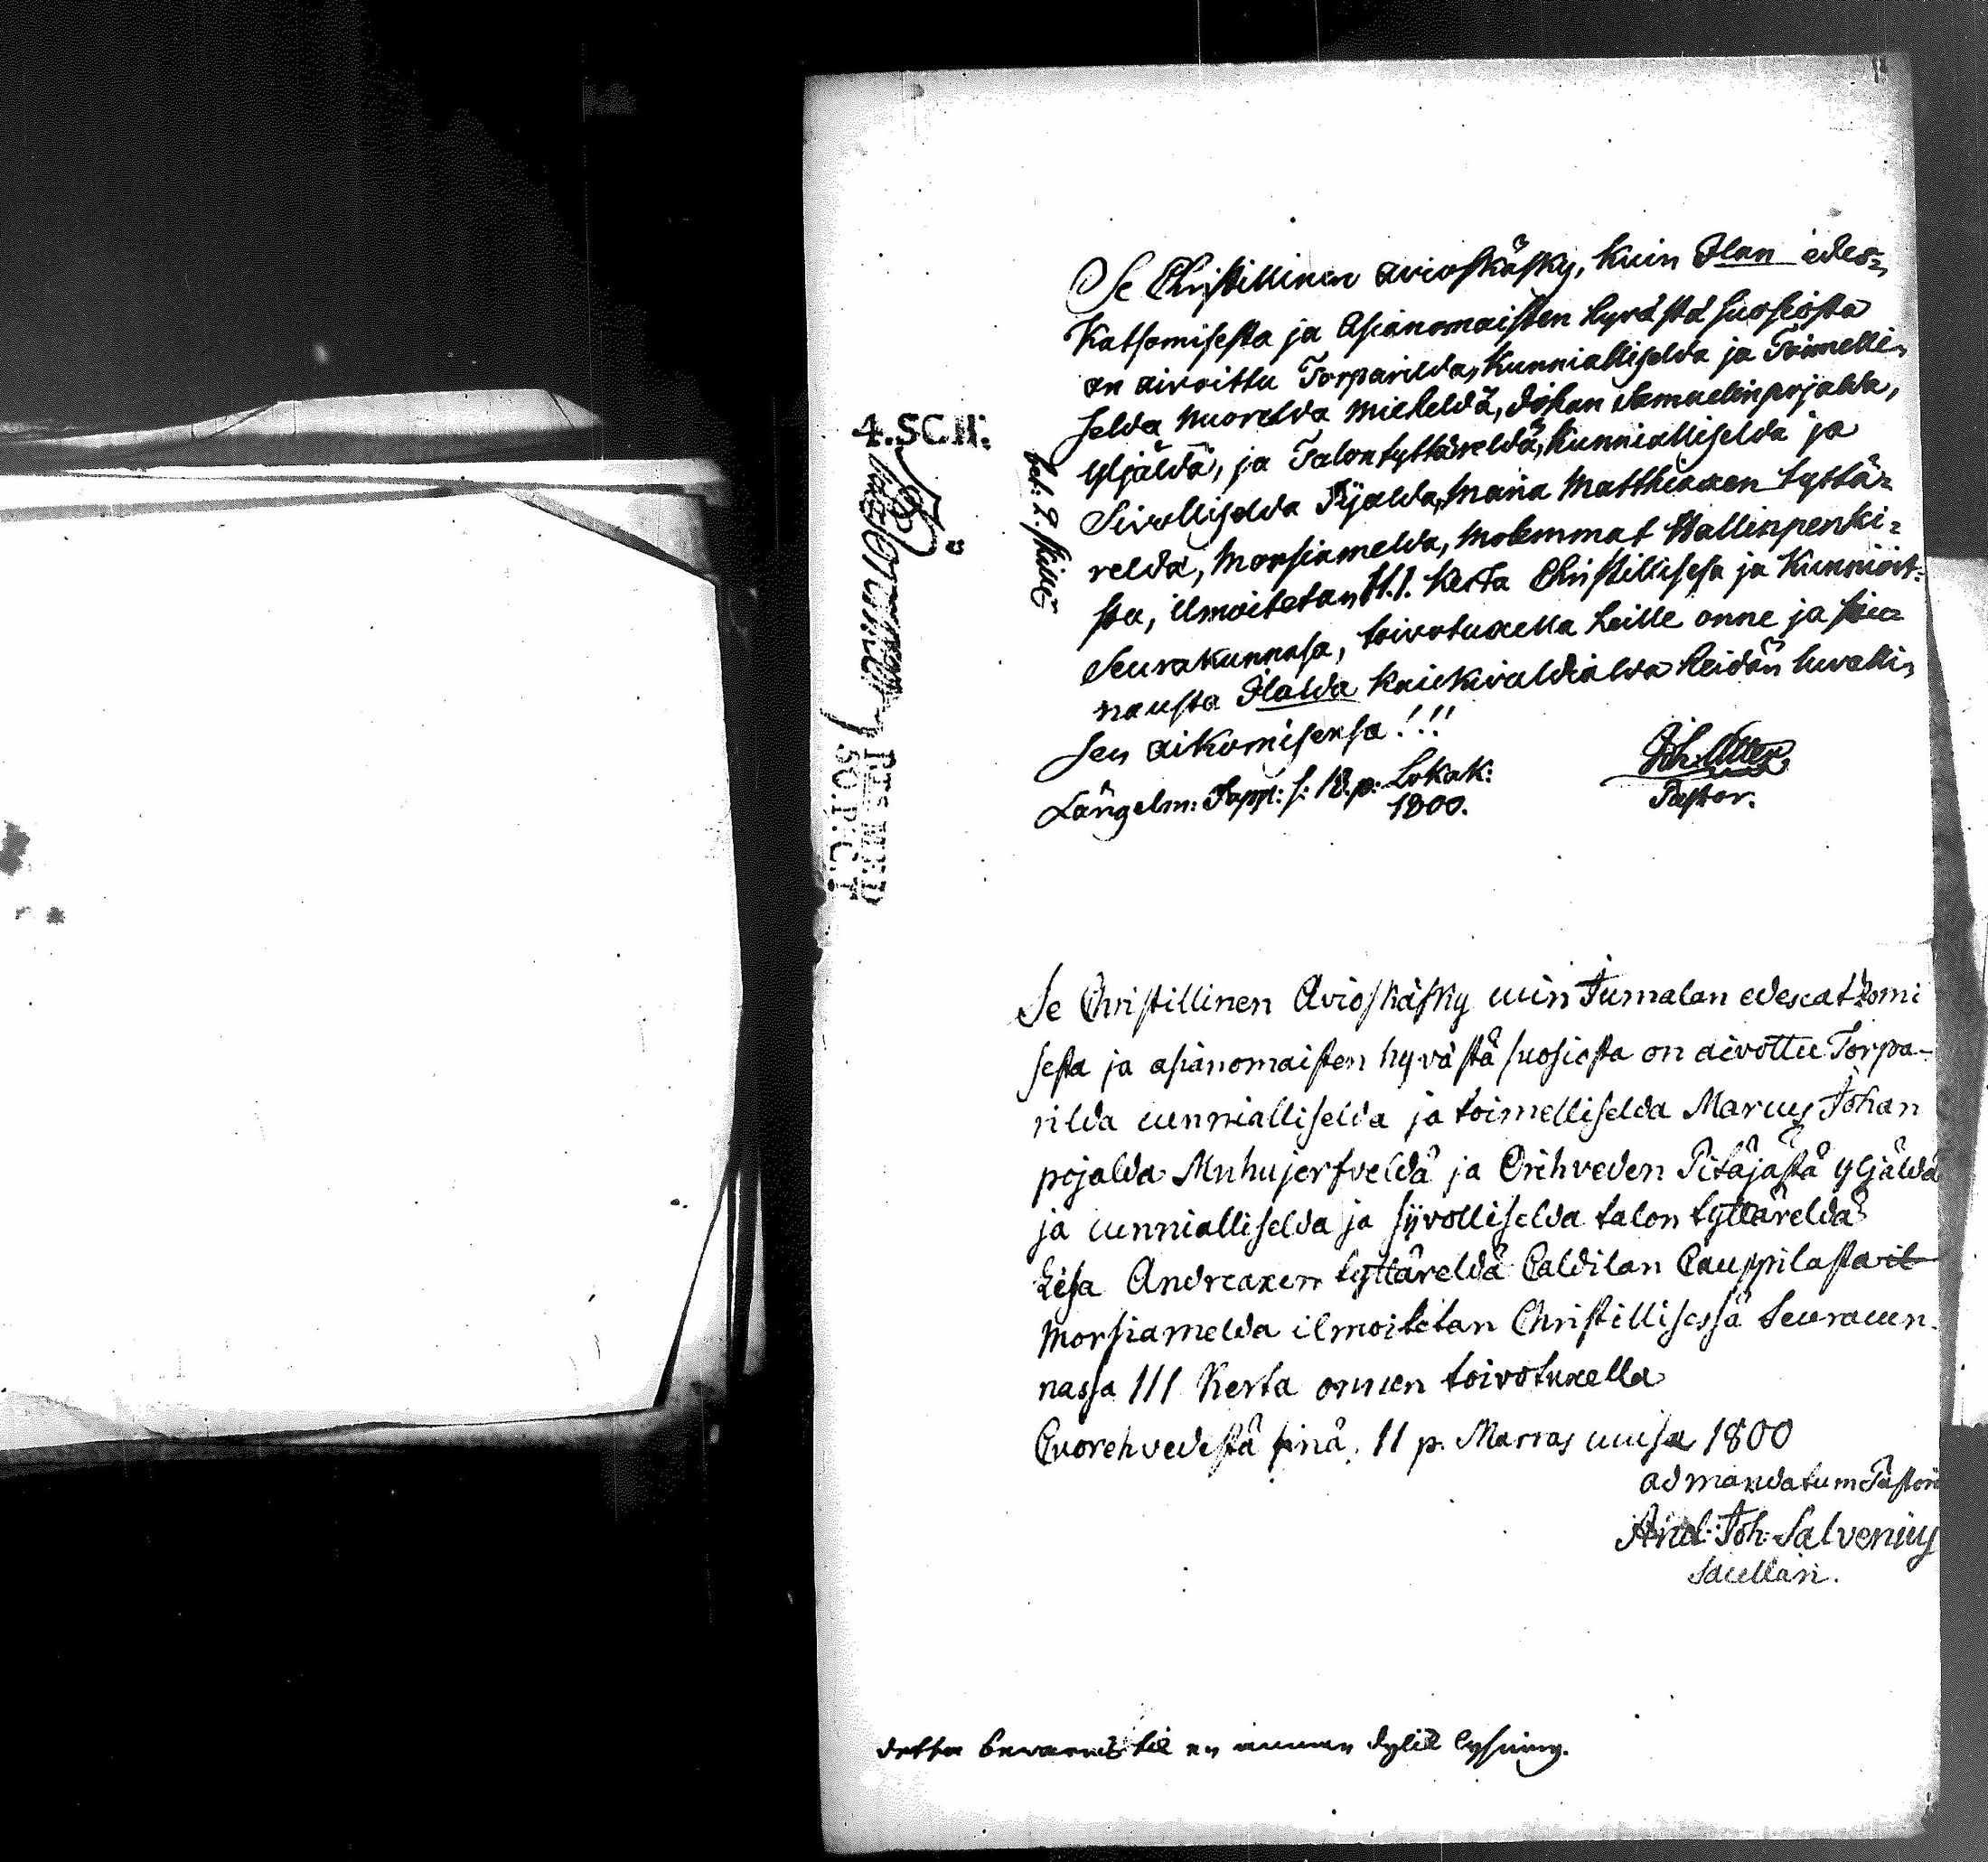 Se Christillinen avioskäsky, kuin Jlan edes=
Katsomisesta ja Asianomaisten hyvästä suosiosta
on aivoittu Torparilda, Kunnialliselda ja Toimelli=
selda Nuorelda Mieheldä, Johan Samuelinpojalda,
Yljäldä, ja Talontyttäreldä, Kunnialliselda ja
Sivolliselda Pijalda, Maria Matthiaxen tyttä=
relda, Morsiamelda, Molemmat Hallinpenki=
sta, ilmoitetan, kerta Christillisesä ja Kunnioit=
Seurakunnasa, toivotuxella heille onne ja siu=
nausta Jlalda Kaickivaldialda heidän luvalli=
sen aikomisensa!!!
Längelm: Papp: s: 18. p: Lokak:
1800.
Pastor.
4.SC.H.
bet: 2. skill
Se Christillinen Avioskäsky cuin Jumalan edescatzomi
sesta ja asianomaisten hyvästä suosiosta on aivottu Torpa-
rilda cunnialliselda ja toimelliselda Marcus Johan
pojalda Muhujerfveldä ja Orihveden Pitäjästä yljäldä
ja cunnialliselda ja siivolliselda talon tyttäreldä
Lisa Andreaxen tyttäreldä Caldilan Cauppilasta
Morsiamelda ilmoitetan Christillisessä Seuracun-
nassa III Kerta onnen toivotuxella
Cuorehvedestä sinä. 11 p. Marras cuusa 1800
ad mandatum Pastoris
And: Joh: Salvenius
Sacellan.
detta bewaras til en annan dylik lysning.